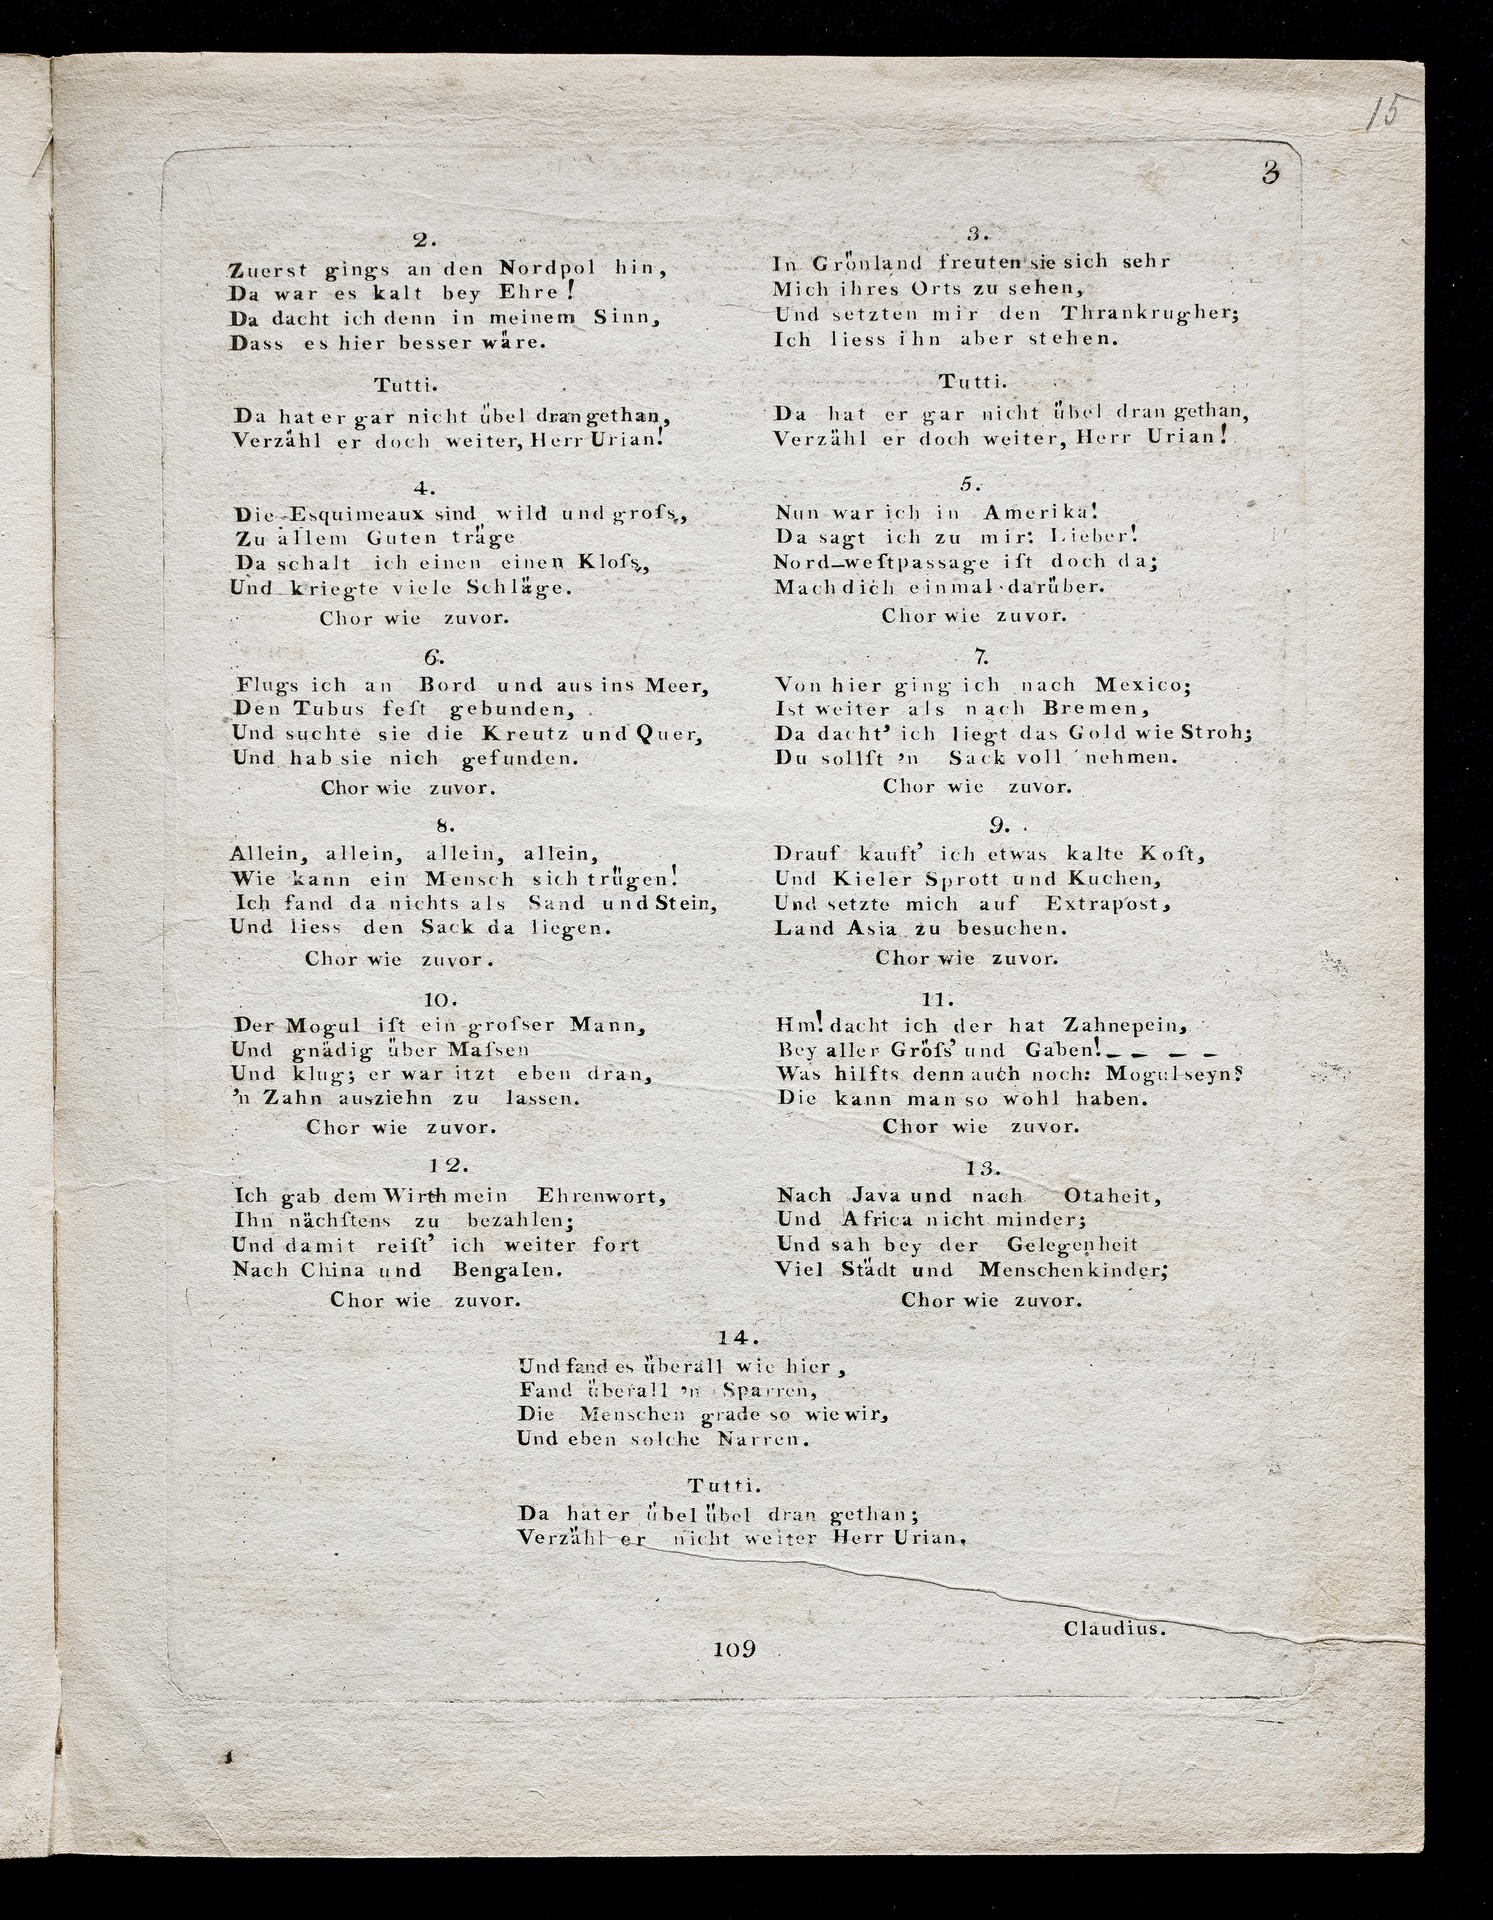 15
3
2.
Zuerst gings an den Nordpol hin,
Da war es kalt bey Ehre!
Da dacht ich denn in meinem Sinn,
Dass es hier besser wäre.
Tutti.
Da hat er gar nicht übel dran gethan,
Verzähl er doch weiter, Herr Urian!
3.
In Grönland freuten sie sich sehr
Mich ihres Orts zu sehen,
Und setzten mir den Thrankrug her;
Ich liess ihn aber stehen.
Tutti.
Da hat er gar nicht übel dran gethan,
Verzähl er doch weiter, Herr Urian!
4.
Die Esquimeaux sind wild und groſs,
Zu allem Guten träge
Da schalt ich einen einen Kloſs,
Und kriegte viele Schläge.
Chor wie zuvor.
5.
Nun war ich in Amerika!
Da sagt ich zu mir: Lieber!
Nord-weſtpassage iſt doch da;
Mach dich einmal darüber.
Chor wie zuvor.
6.
Flugs ich an Bord und aus ins Meer,
Den Tubus feſt gebunden,
Und suchte sie die Kreutz und Quer,
Und hab sie nich gefunden.
Chor wie zuvor.
7.
Von hier ging ich nach Mexico;
Ist weiter als nach Bremen,
Da dacht' ich liegt das Gold wie Stroh;
Du sollſt 'n Sack voll nehmen.
Chor wie zuvor.
8.
Allein, allein, allein, allein,
Wie kann ein Mensch sich trügen!
Ich fand da nichts als Sand und Stein,
Und liess den Sack da liegen.
Chor wie zuvor.
9.
Drauf kauft' ich etwas kalte Koſt,
Und Kieler Sprott und Kuchen,
Und setzte mich auf Extrapost,
Land Asia zu besuchen.
Chor wie zuvor.
10.
Der Mogul iſt ein groſser Mann,
Und gnädig über Maſsen
Und klug; er war itzt eben dran,
'n Zahn ausziehn zu lassen.
Chor wie zuvor.
11.
Hm! dacht ich der hat Zahnepein,
Bey aller Gröſs' und Gaben!_ _ _ _
Was hilfts denn auch noch: Mogul seyn?
Die kann man so wohl haben.
Chor wie zuvor.
12.
Ich gab dem Wirth mein Ehrenwort,
Ihn nächſtens zu bezahlen;
Und damit reiſt' ich weiter fort
Nach China und Bengalen.
Chor wie zuvor.
13.
Nach Java und nach Otaheit,
Und Africa nicht minder;
Und sah bey der Gelegenheit
Viel Städt und Menschenkinder;
Chor wie zuvor.
14.
Und fand es überall wie hier,
Fand überall 'n Sparren,
Die Menschen grade so wie wir,
Und eben solche Narren.
Tutti.
Da hat er übel übel dran gethan;
Verzähl er nicht weiter Herr Urian.
Claudius.
109